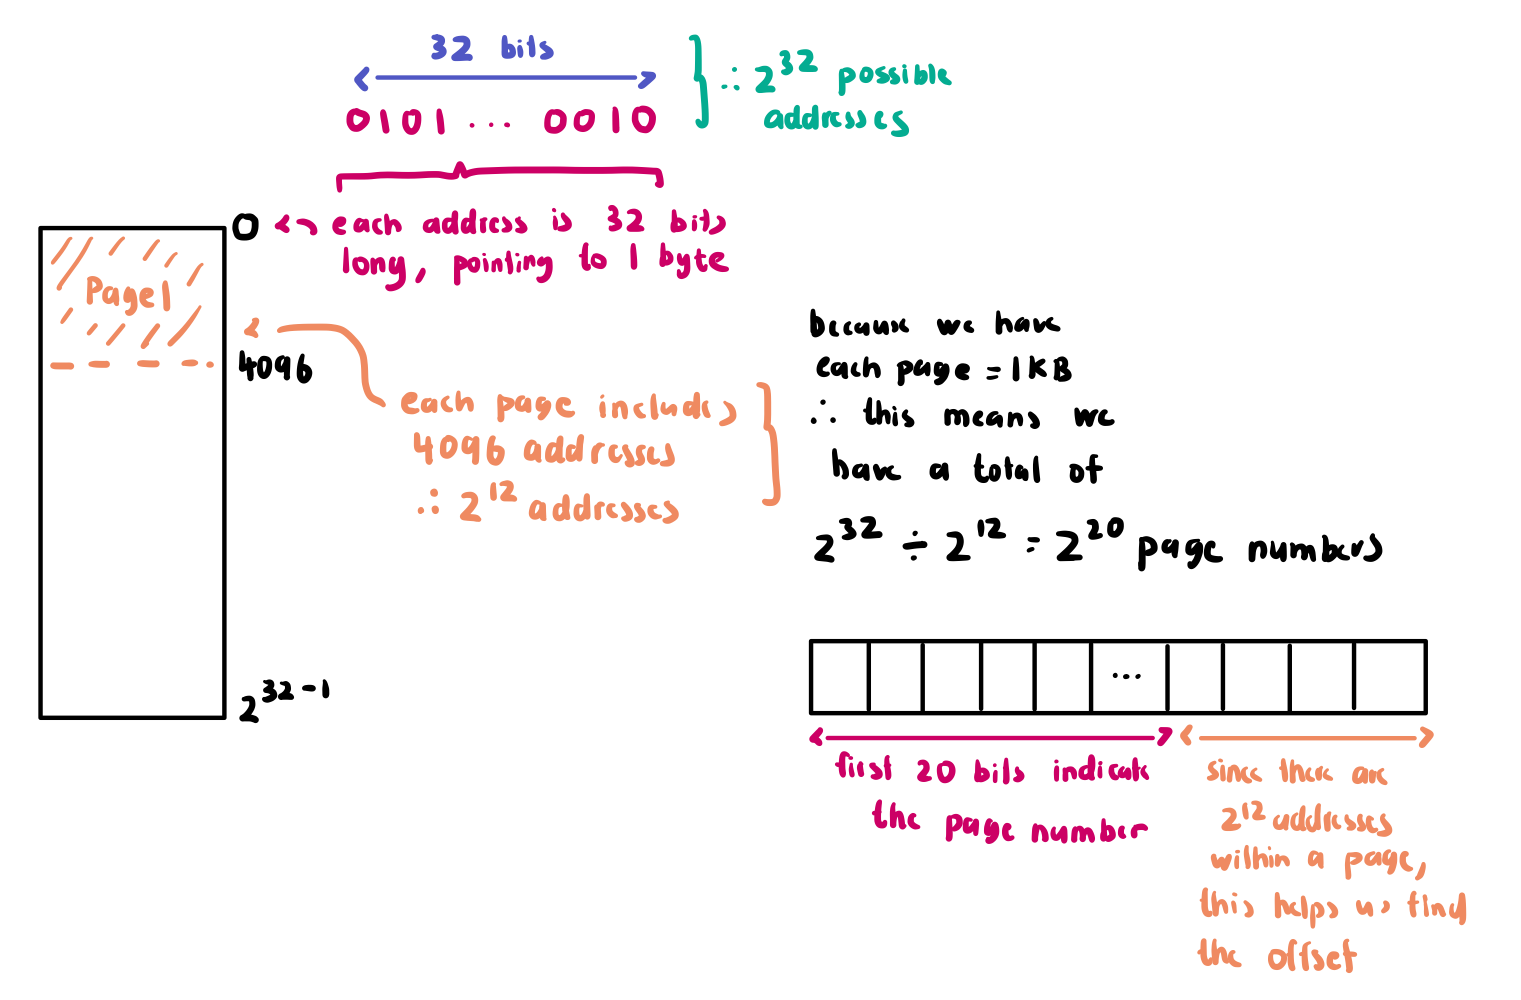 32 bits
0101 ... 0010
∴ 2^32 possible
addresses
0
each address is 32 bits
long, pointing to 1 byte
Page1
4096
each page includes
4096 addresses
∴ 2^12 addresses
because we have
each page = 1KB
∴ this means we
have a total of
2^32 ÷ 2^12 = 2^20 page numbers
2^32-1
...
first 20 bits indicate
the page number
since there are
2^12 addresses
within a page,
this helps us find
the offset